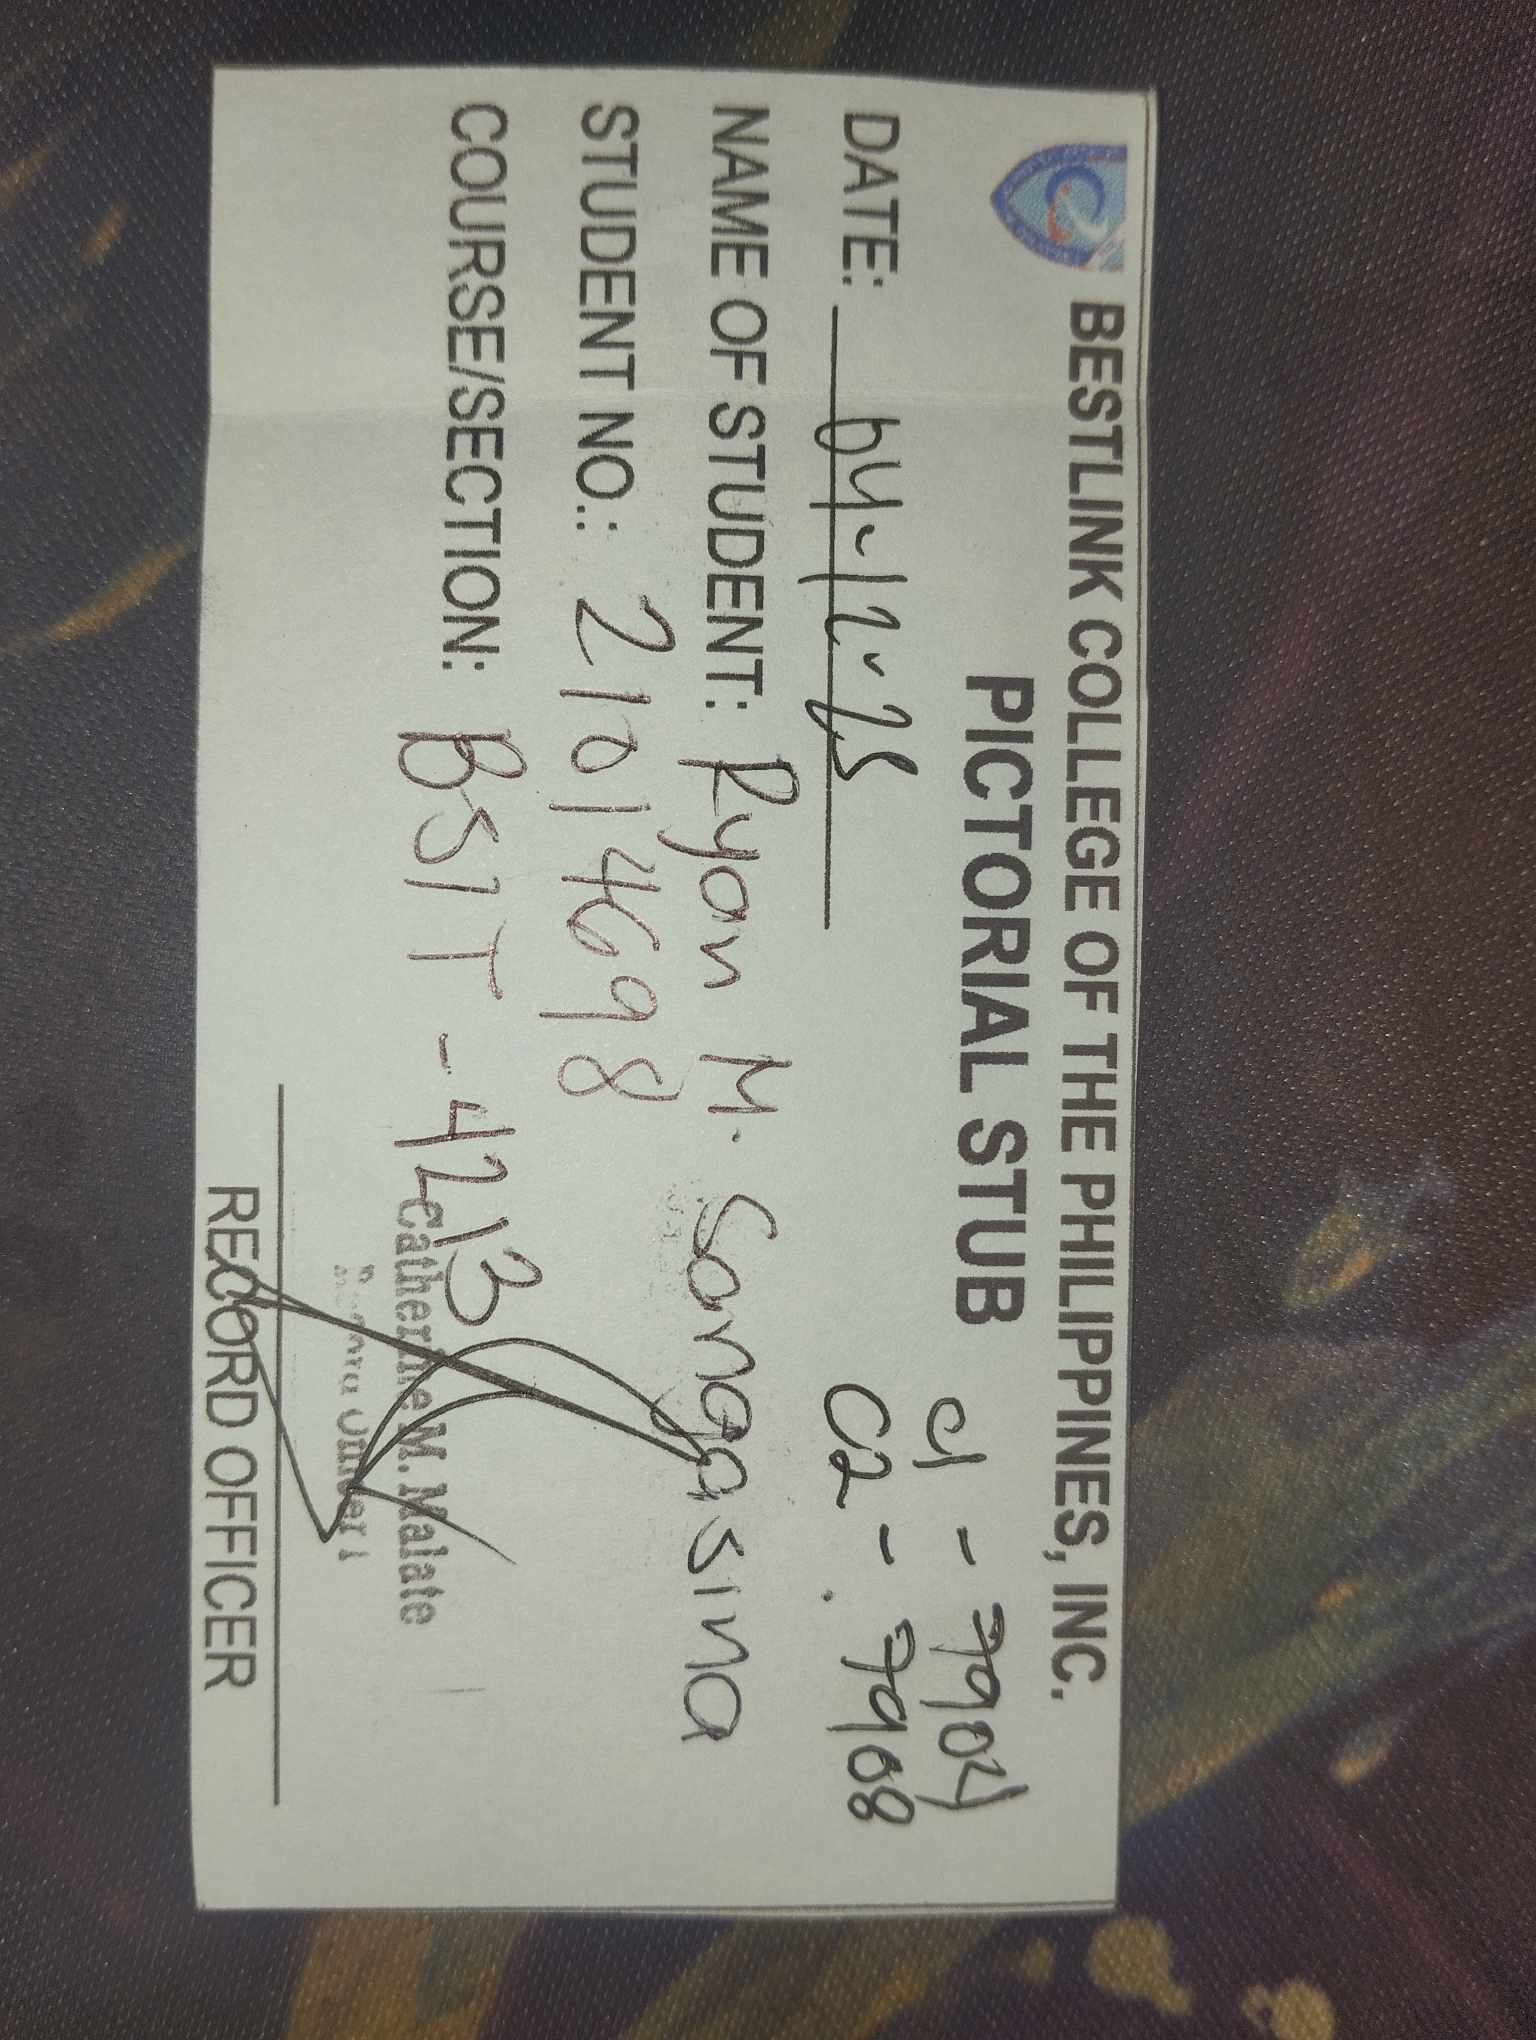 BESTLINK COLLEGE OF THE PHILIPPINES, INC.
PICTORIAL STUB
C1 - 7904
DATE: 04-12-25
C2 - 7908
NAME OF STUDENT: Ryan M. Songasina
STUDENT NO.: 21014698
COURSE/SECTION: BSIT - 4213
Catherine M. Malate
RECORD OFFICER